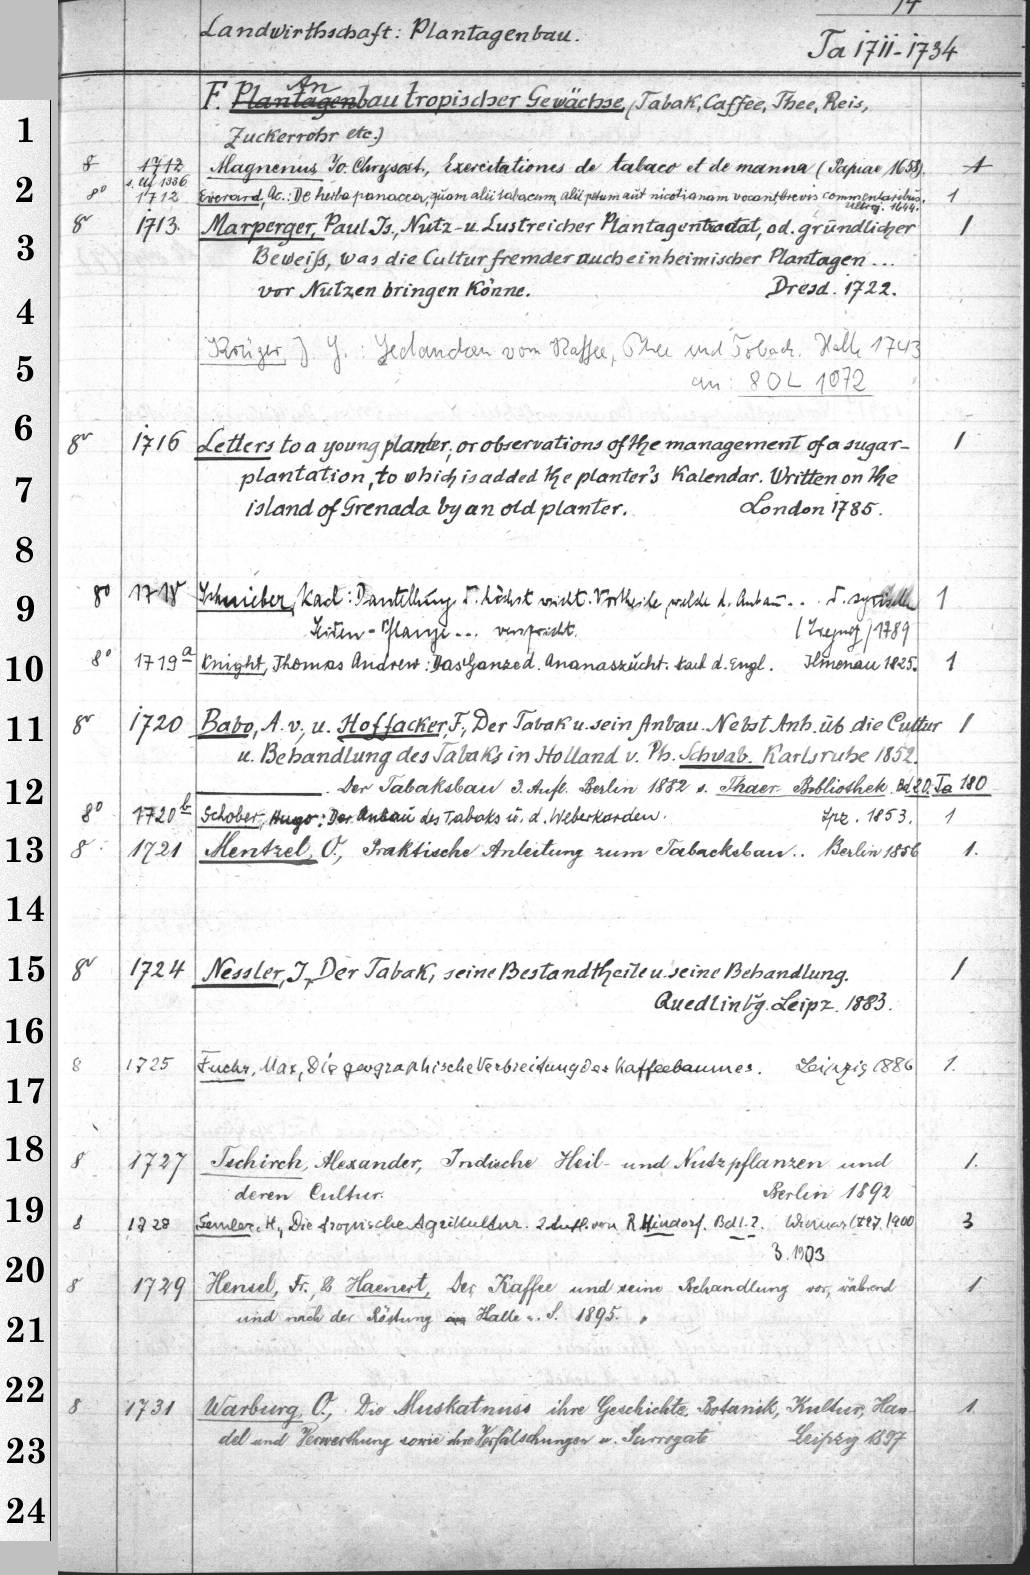 14
Landwirthschaft: Plantagenbau.
Ta 1711-1734
An
F. Plantagenbau tropischer Gewächse, (Tabak, Caffee, Thee, Reis,
1
Zuckerrohr etc.)
8 1712 Magnenus Jo. Chrysost., Exercitationes de tabaco et de manna (Papiae 1658). 1
2
8° 1712 Everard, Ae.: De herba panacea, quam alii tabacum, alii petum aut nicotianam vocant, brevis commentariolus. 1
1644.
8° 1713. Marperger, Paul Js., Nutz- u. Lustreicher Plantagentractat, od. gründlicher 1
3
Beweiß, was die Cultur fremder auch einheimischer Plantagen ...
vor Nutzen bringen könne. Dresd. 1722.
4
Krüger, J. G.: Gedancken vom Kaffee, Thee und Toback. Halle 1743
5
an: 80L 1072
6
8° 1716 Letters to a young planter; or observations of the management of a sugar-
1
plantation, to which is added the planter's Kalendar. Written on the
7
island of Grenada by an old planter. London 1785.
8
9
8° 1718 Karl: d. Anbau . . . d. syrischen 1
Seiden-Pflanze ... verspricht. 1789
10
8° 1719a Knight, Thomas Andrew: Das Ganze d. Ananaszucht. Nach d. Engl. Ilmenau 1825. 1
11
8° 1720 Babo, A. v., u. Hoffacker, F., Der Tabak u. sein Anbau. Nebst Anh. üb die Cultur 1
u. Behandlung des Tabaks in Holland v. Ph. Schwab. Karlsruhe 1852.
12
Der Tabaksbau 3. Aufl. Berlin 1882 s. Thaer Bibliothek Bd 20. Ta 180
8° 1720b Schober, Hugo: Der Anbau des Tabaks u. d. Weberkarden. Lpz. 1853. 1
13
8° 1721 Mentzel, O., Praktische Anleitung zum Tabacksbau.. Berlin 1856 1.
14
15
8° 1724 Nessler, J., Der Tabak, seine Bestandtheile u. seine Behandlung. 1
Quedlinbg. Leipz. 1883.
16
8 1725 Fuchs, Max, Die geographische Verbreitung des Kaffeebaumes. Leipzig 1886 1.
17
18
8 1727 Tschirch, Alexander, Indische Heil- und Nutzpflanzen und 1.
deren Cultur. Berlin 1892
19
8 1728 Semler, H., Die tropische Agrikultur. 2. Aufl. von R. Hindorf. Bd 1. 2. Wismar 1897. 1900 3
3. 1903
20
8 1729 Hensel, Fr., & Haenert, Der Kaffee und seine Behandlung vor, während 1
und nach der Röstung Halle a. S. 1895.
21
22
8 1731 Warburg, O., Die Muskatnuss ihre Geschichte, Botanik, Kultur, Han- 1
23
del und Verwerthung sowie ihre Verfälschungen u. Surrogate Leipzig 1897
24